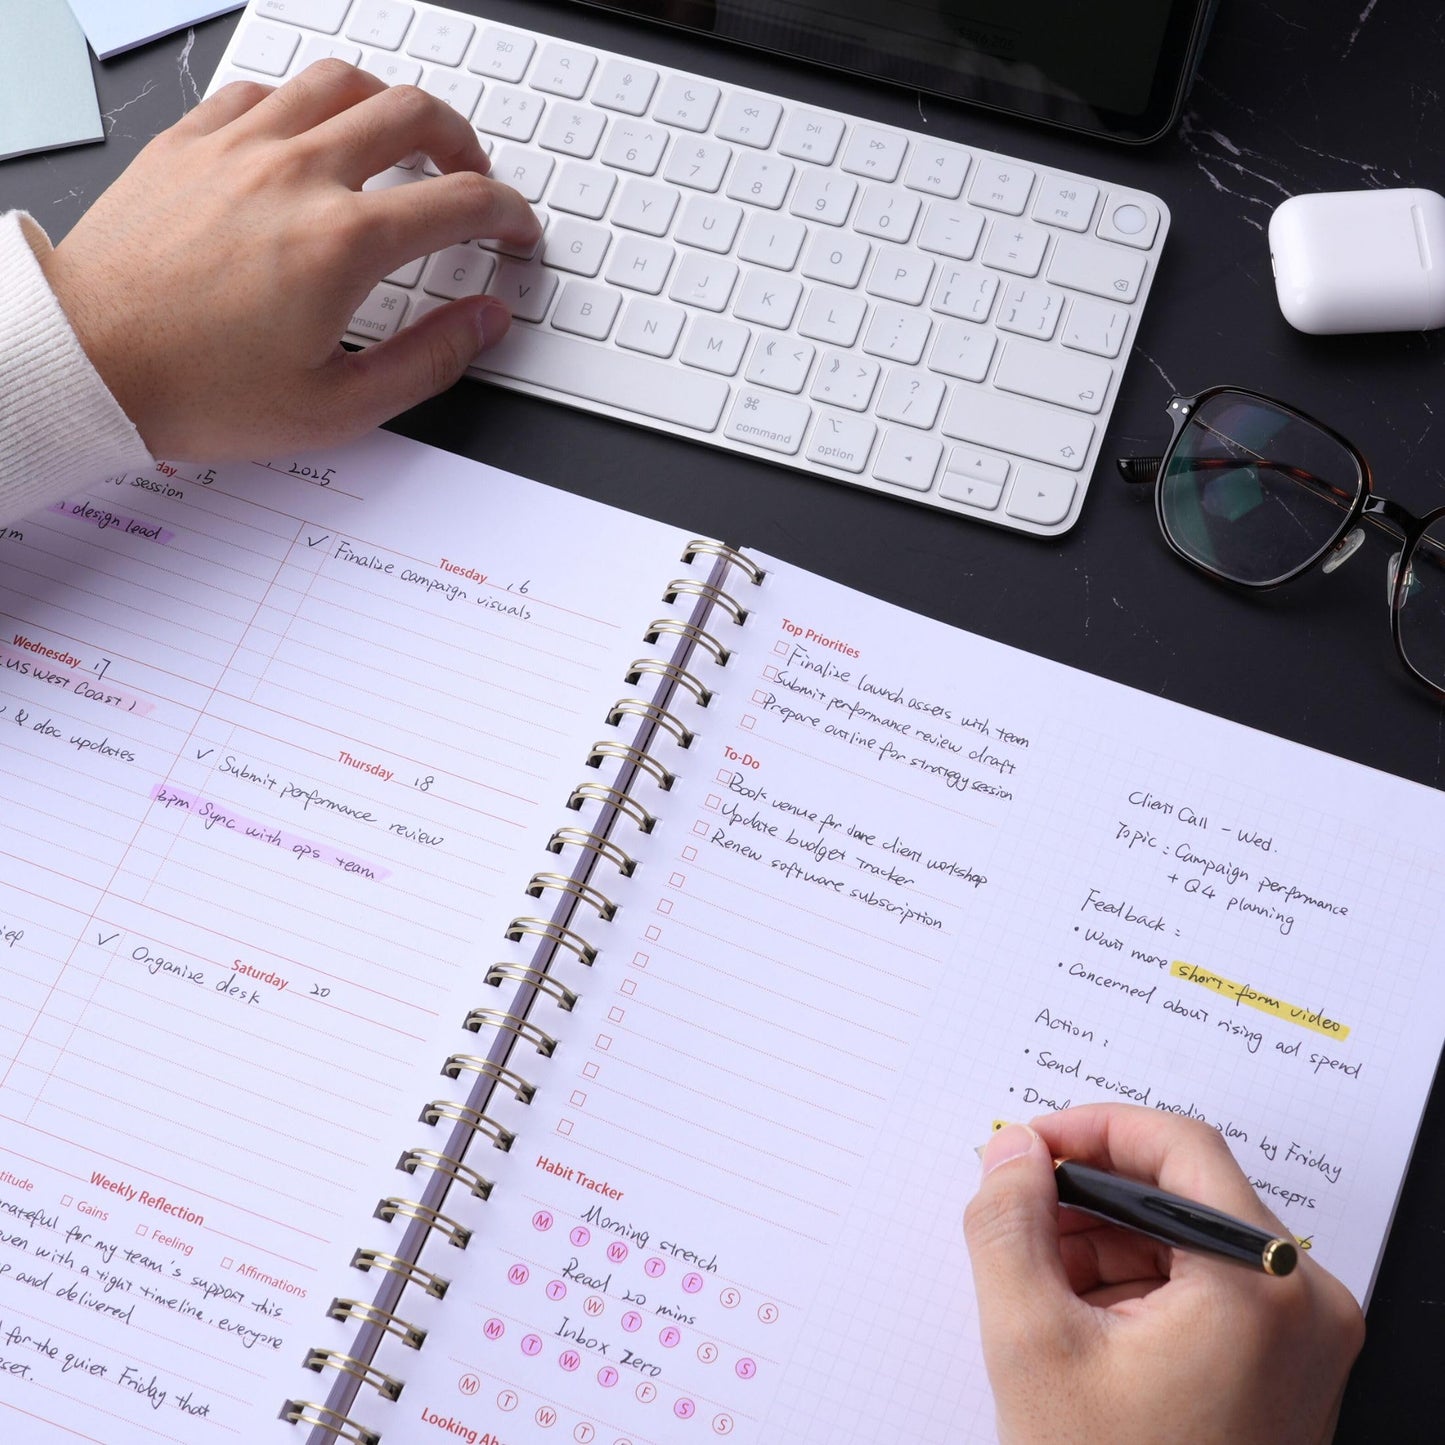 $326,205
esc
F1
F2
F3
F4
F5
F6
F7
F8
F9
F10
F11
F12
#
¥ $
4
%
5
… ^
6
&
7
*
8
(
9
)
0
—
-
+
=
R
T
Y
U
I
O
P
G
H
J
K
L
C
V
B
N
M
?
/
command
command
option
day 15
2025
session
design lead
Tuesday 16
✓ Finalize campaign visuals
Wednesday 17
US West Coast)
& doc updates
Thursday 18
✓ Submit performance review
3pm Sync with ops team
Saturday 20
✓ Organize desk
Weekly Reflection
Gains
Feeling
Affirmations
grateful for my team's support this
even with a tight timeline, everyone
and delivered
for the quiet Friday that
Top Priorities
Finalize launch assets with team
Submit performance review draft
Prepare outline for strategy session
To-Do
Book venue for June client workshop
Update budget tracker
Renew software subscription
Habit Tracker
Morning stretch
M T W T F S S
Read 20 mins
M T W T F S S
Inbox Zero
M T W T F S S
M T W T
Looking
Client Call - Wed.
Topic : Campaign performance
+ Q4 planning
Feedback :
• Want more short-form video
• Concerned about rising ad spend
Action :
• Send revised media plan by Friday
• Draf
concepts